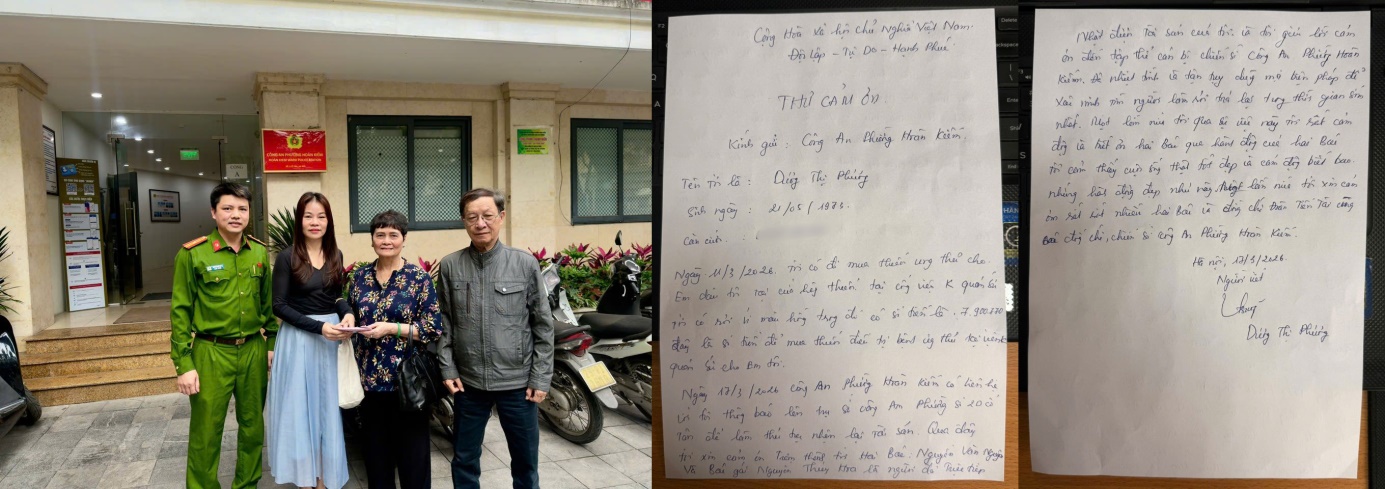 CÔNG AN PHƯỜNG HOÀN KIẾM
Cộng Hòa Xã hội chủ Nghĩa Việt Nam.
Độc lập - Tự Do - Hạnh Phúc
THƯ CẢM ƠN
Kính gửi : Công An Phường Hoàn Kiếm.
Tên tôi là : Dương Thị Phương
Sinh ngày : 21/05/1973.
Căn cước :
Ngày 11/3/2026. tôi có đi mua thuốc ung thư cho.
Em dâu tôi tại cửa hàng thuốc tại cổng viện K quán sứ
có rơi ví màu hồng trong đó có số tiền là : 7.900.870
đây là số tiền để mua thuốc điều trị bệnh ung thư tại viện K
quán sứ cho Em tôi.
Ngày 17/3/2026 công An Phường Hoàn Kiếm có liên hệ
với tôi thông báo lên trụ sở công An Phường số 20 cổ
Tân để làm thủ tục nhận lại Tài sản. Qua đây
tôi xin cảm ơn chân thành tới Hai Bác: Nguyễn Văn
Và Bác gái Nguyễn Thúy Hoa là người đã Trực tiếp
Nhặt được Tài sản của tôi và tôi gửi lời cảm
ơn đến tập thể cán bộ chiến sĩ Công An Phường Hoàn
Kiếm. Đã nhiệt tình và tận tụy dùng mọi biện pháp để
xác minh tìm người làm rơi trả lại trong thời gian sớm
nhất. Một lần nữa tôi qua sự việc này tôi rất cảm
động và biết ơn hai Bác qua hành động của hai Bác
tôi cảm thấy cuộc sống thật tốt đẹp và cảm động biết bao.
những hành động đẹp như này. Một lần nữa tôi xin cảm
ơn rất rất nhiều hai Bác và đồng chí Tiến Tài cùng
đồng chí, chiến sĩ công An Phường Hoàn Kiếm.
Hà nội, 17/3/2026.
Người viết
Dương Thị Phương